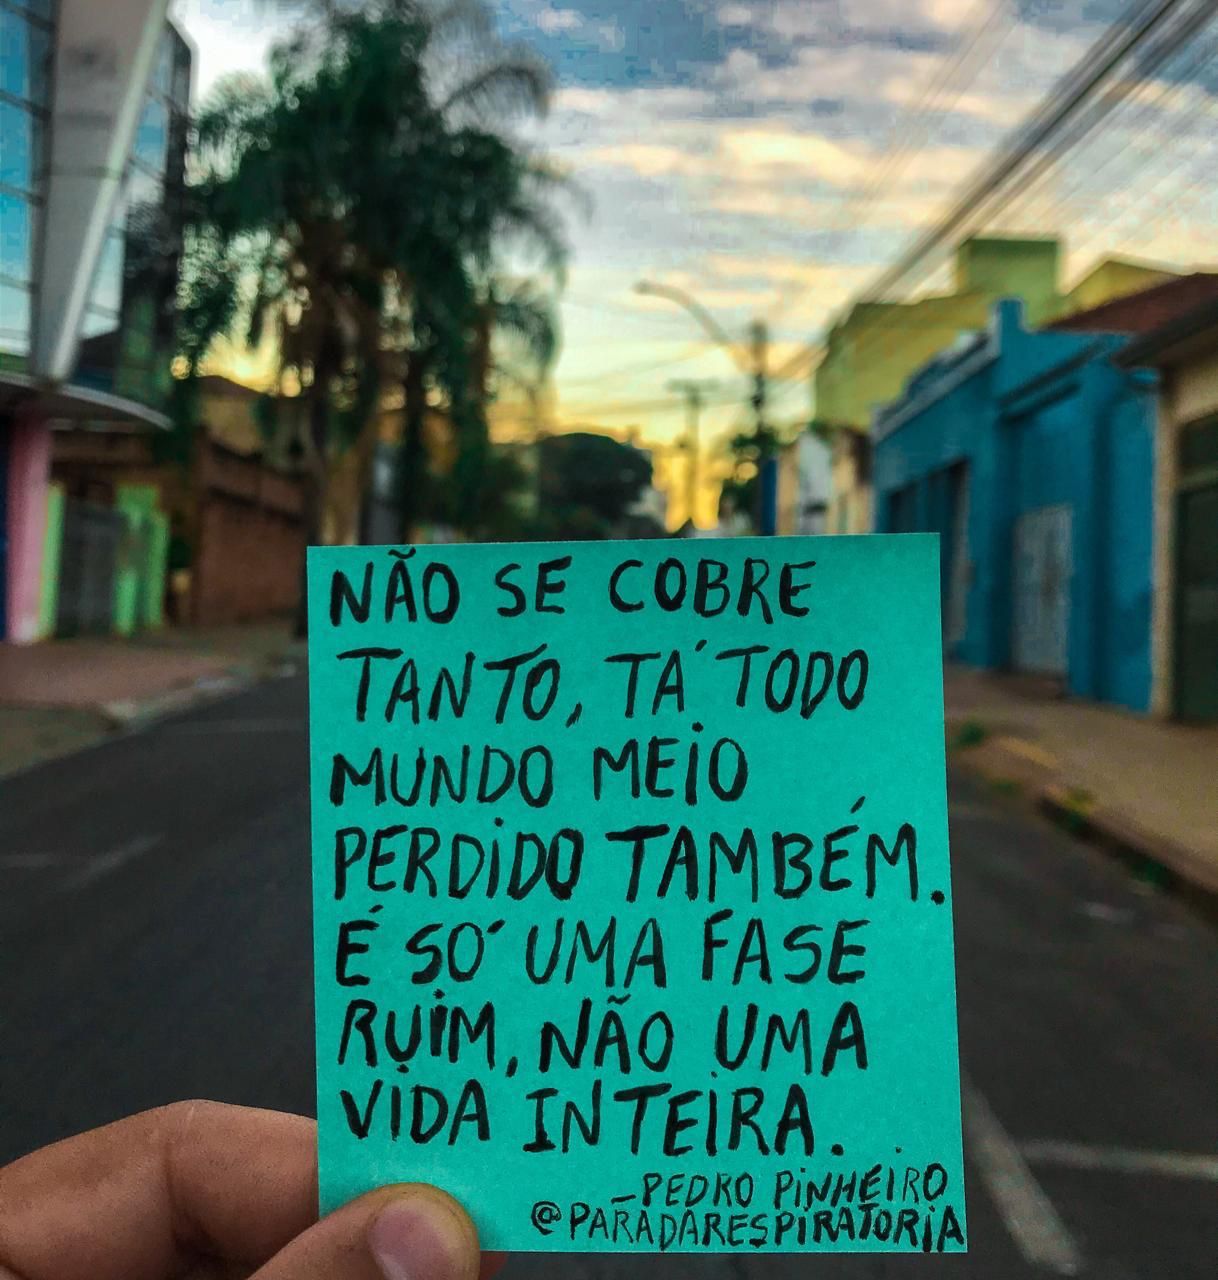 NÃO SE COBRE
TANTO, TÁ TODO
MUNDO MEIO
PERDIDO TAMBÉM.
É SÓ UMA FASE
RUIM, NÃO UMA
VIDA INTEIRA.
_PEDRO PINHEIRO
@PARADARESPIRATORIA